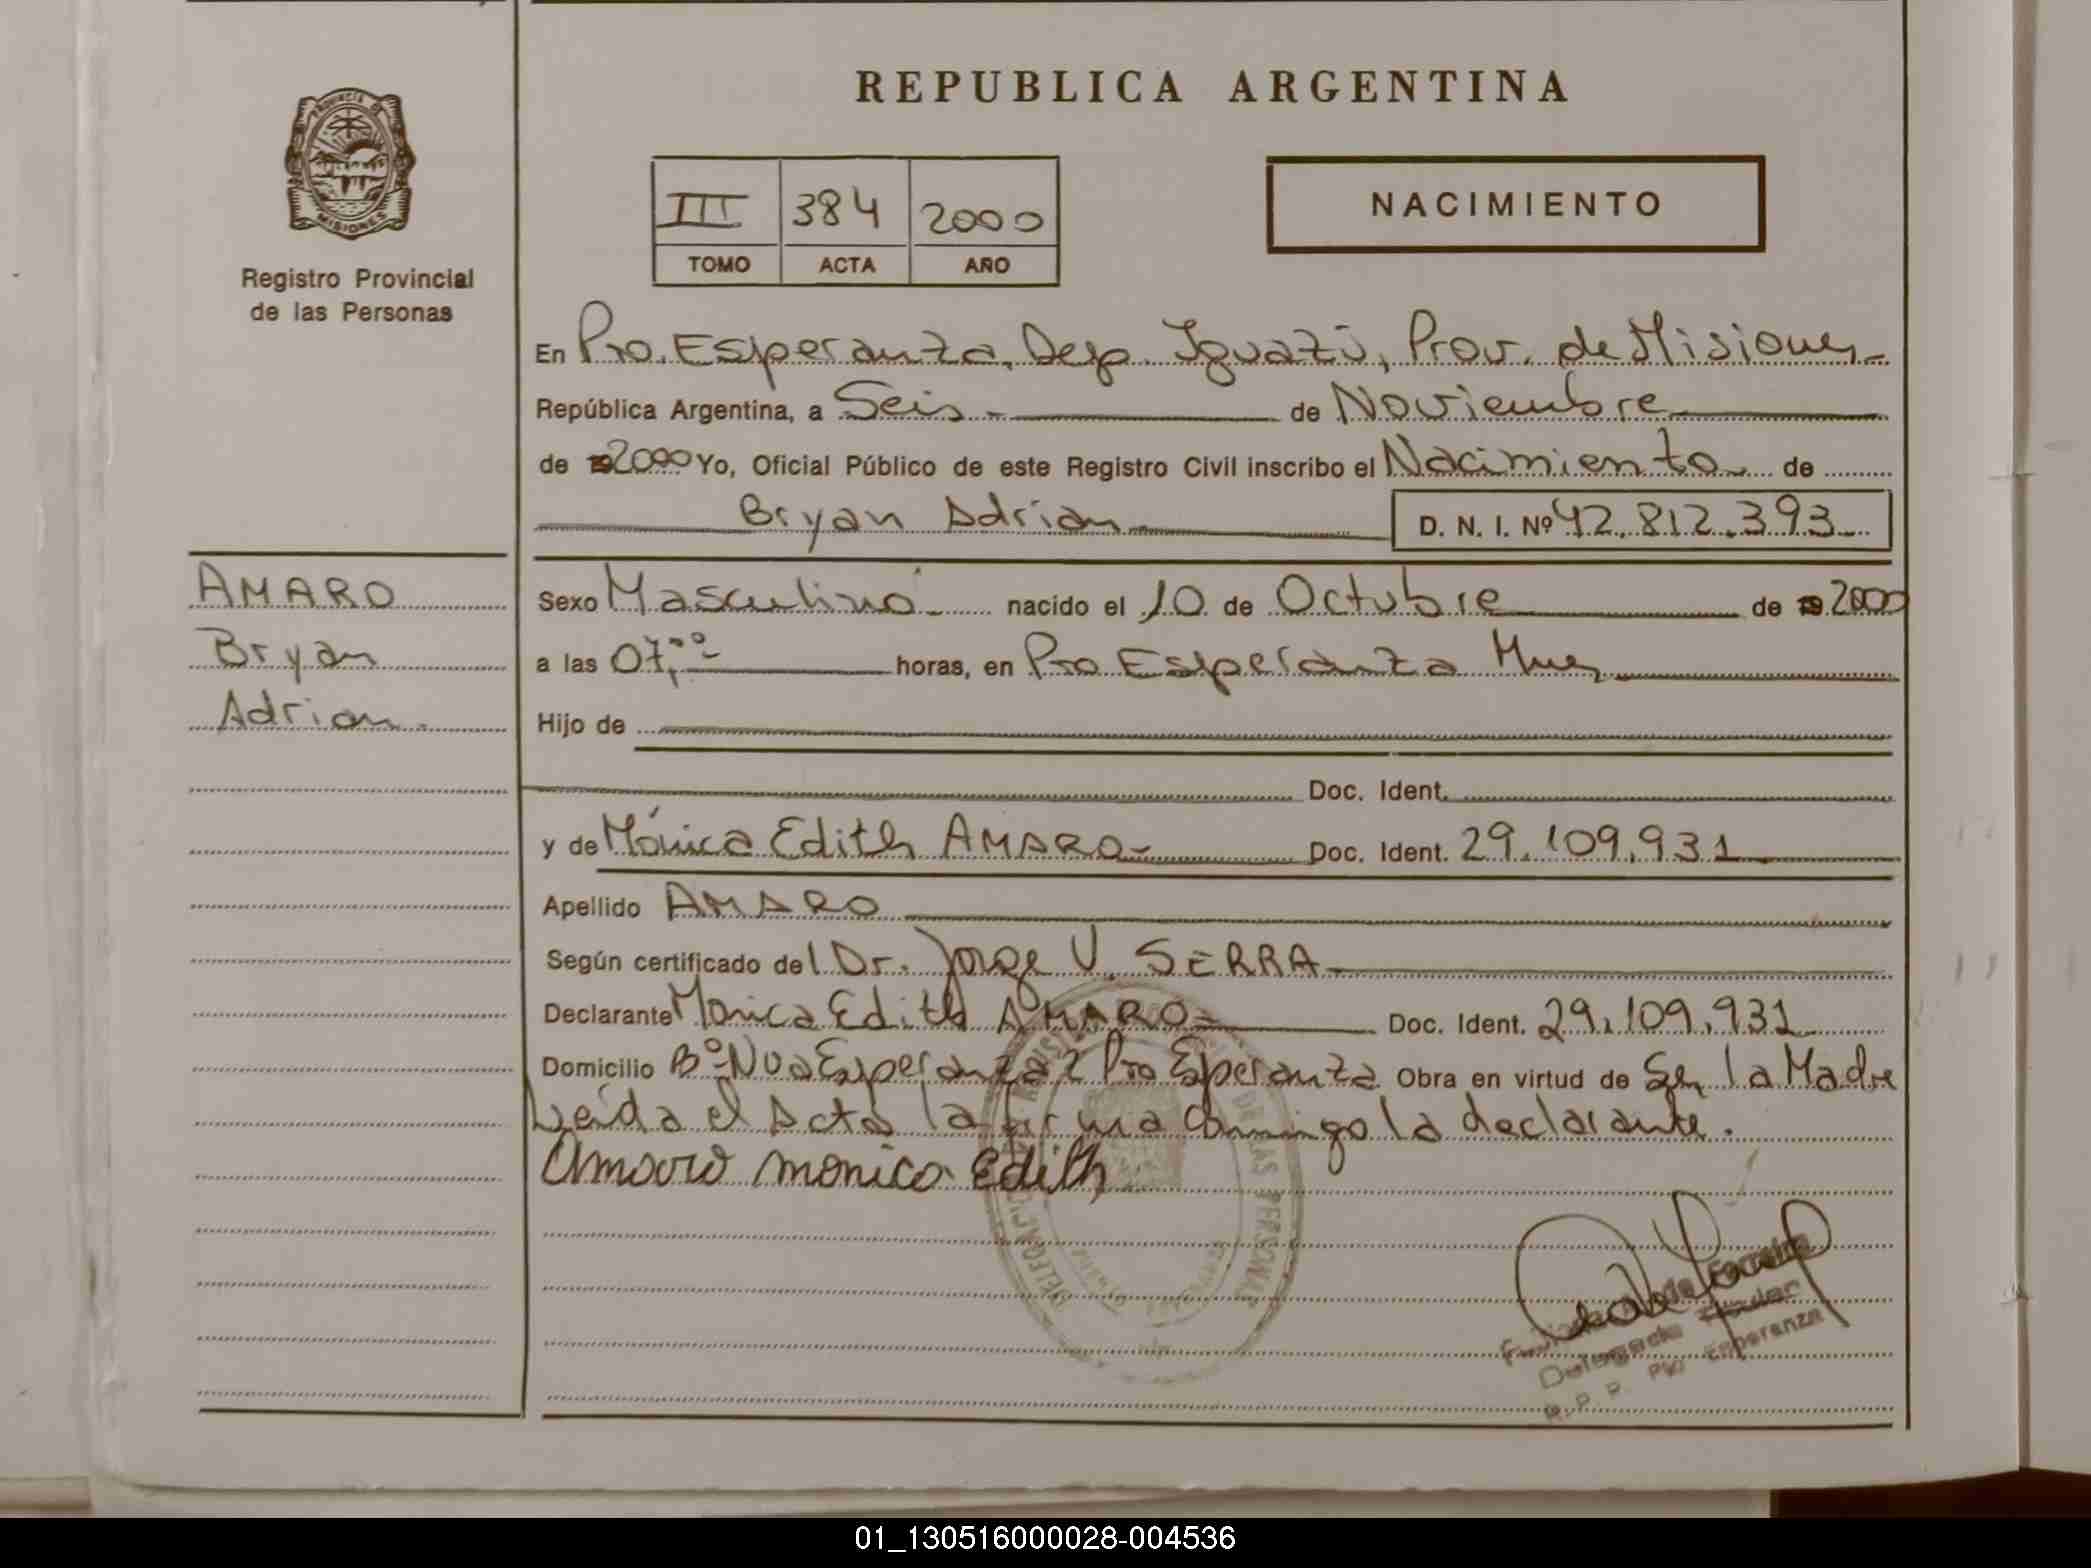 REPUBLICA ARGENTINA
PROVINCIA DE
MISIONES
Registro Provincial
de las Personas
III 384 2000
TOMO ACTA AÑO
NACIMIENTO
En Pto. Esperanza, Dep. Iguazú, Prov. de Misiones
República Argentina, a Seis de Noviembre
de 2000 Yo, Oficial Público de este Registro Civil inscribo el Nacimiento de
Bryan Adrian D. N. I. Nº 42.812.393
AMARO
Bryan
Adrian.
Sexo Masculino nacido el 10 de Octubre de 2000
a las 07,00 horas, en Pto Esperanza Mnes
Hijo de
Doc. Ident.
y de Mónica Edith AMARO- Doc. Ident. 29.109.931
Apellido AMARO
Según certificado del Dr. Jorge V. SERRA
Declarante Monica Edith AMARO- Doc. Ident. 29.109.931
Domicilio Bº Nva Esperanza 2 Pto Esperanza Obra en virtud de Ser la Madre
Leída el Acta la firma conmigo la declarante.
Amaro monica Edith
DE LAS PERSONAS
Delegada Titular
R. P. P. Pto Esperanza
01_130516000028-004536